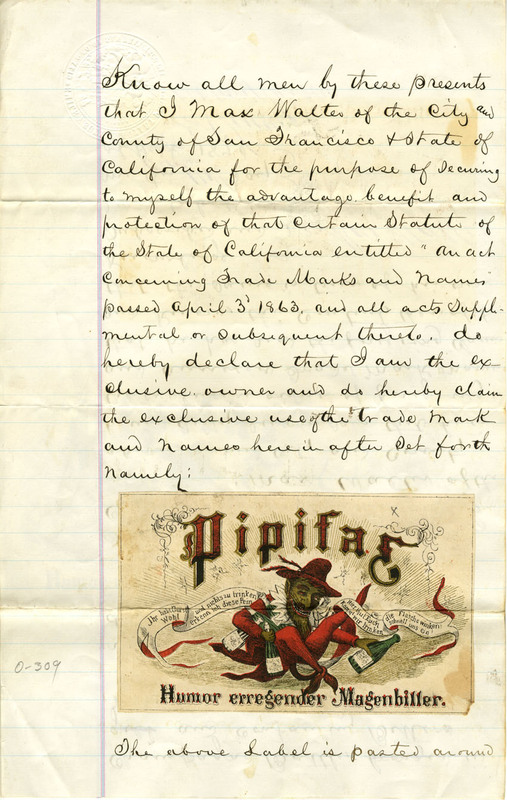 Know all men by these presents
that I Max Walter of the City and
County of San Francisco & State of
California for the purpose of Securing
to myself the advantage benefit and
protection of that certain Statute of
the State of California entitled "an act
Concerning Trade Marks and Names"
passed April 3d 1863, and all acts Supple-
mental or subsequent thereto, do
hereby declare that I am the ex-
clusive owner and do hereby claim
the exclusive use of the trade mark
and Names herein after Set forth
Namely:
x
Pipifax
und nichts zu trinken
Humor erregender Magenbitter.
0-309
The above Label is pasted around